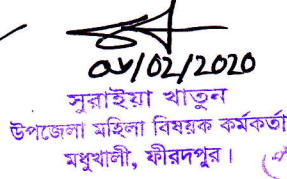 ০৮/02/2020
সুরাইয়া খাতুন
উপজেলা মহিলা বিষয়ক কর্মকর্তা
মধুখালী, ফরিদপুর।